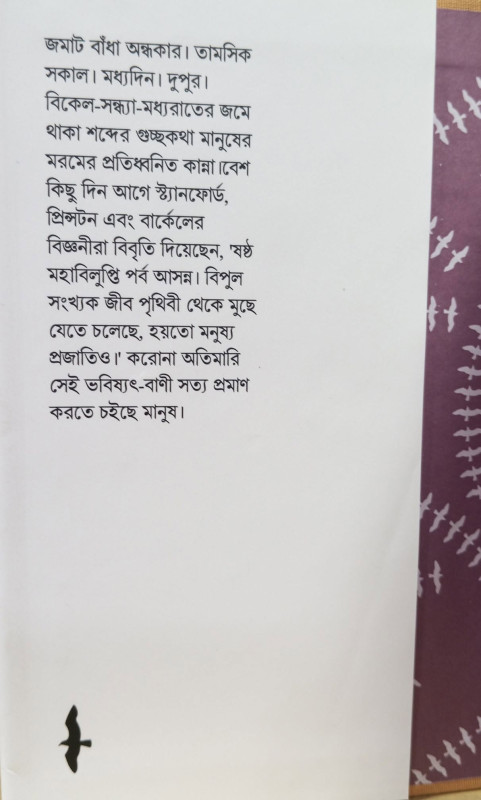 জমাট বাঁধা অন্ধকার। তামসিক
সকাল। মধ্যদিন। দুপুর।
বিকেল-সন্ধ্যা-মধ্যরাতের জমে
থাকা শব্দের গুচ্ছকথা মানুষের
মরমের প্রতিধ্বনিত কান্না।বেশ
কিছু দিন আগে স্ট্যানফোর্ড,
প্রিন্সটন এবং বার্কেলের
বিজ্ঞনীরা বিবৃতি দিয়েছেন, 'ষষ্ঠ
মহাবিলুপ্তি পর্ব আসন্ন। বিপুল
সংখ্যক জীব পৃথিবী থেকে মুছে
যেতে চলেছে, হয়তো মনুষ্য
প্রজাতিও।' করোনা অতিমারি
সেই ভবিষ্যৎ-বাণী সত্য প্রমাণ
করতে চইছে মানুষ।